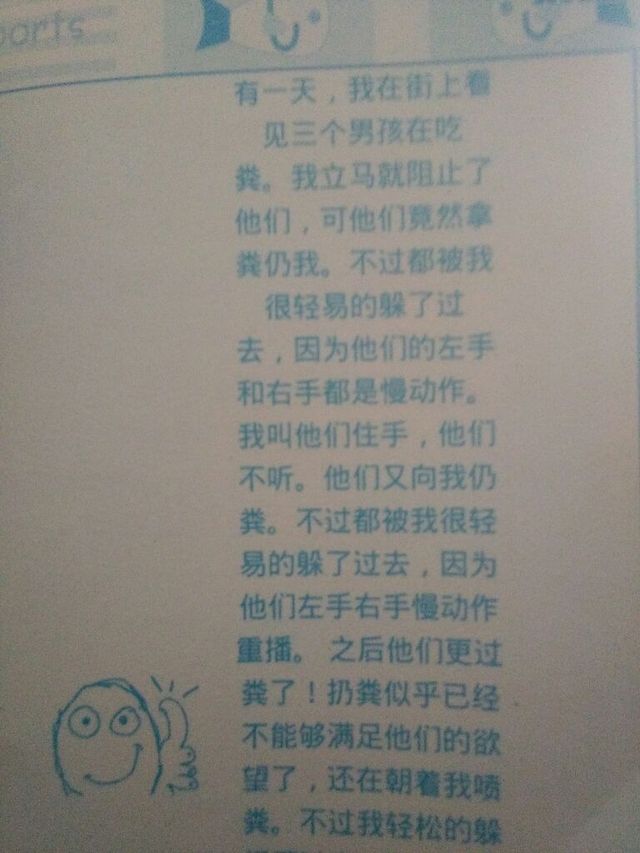 ports
有一天，我在街上看
见三个男孩在吃
粪。我立马就阻止了
他们，可他们竟然拿
粪仍我。不过都被我
很轻易的躲了过
去，因为他们的左手
和右手都是慢动作。
我叫他们住手，他们
不听。他们又向我仍
粪。不过都被我很轻
易的躲了过去，因为
他们左手右手慢动作
重播。之后他们更过
粪了！扔粪似乎已经
不能够满足他们的欲
望了，还在朝着我喷
粪。不过我轻松的躲